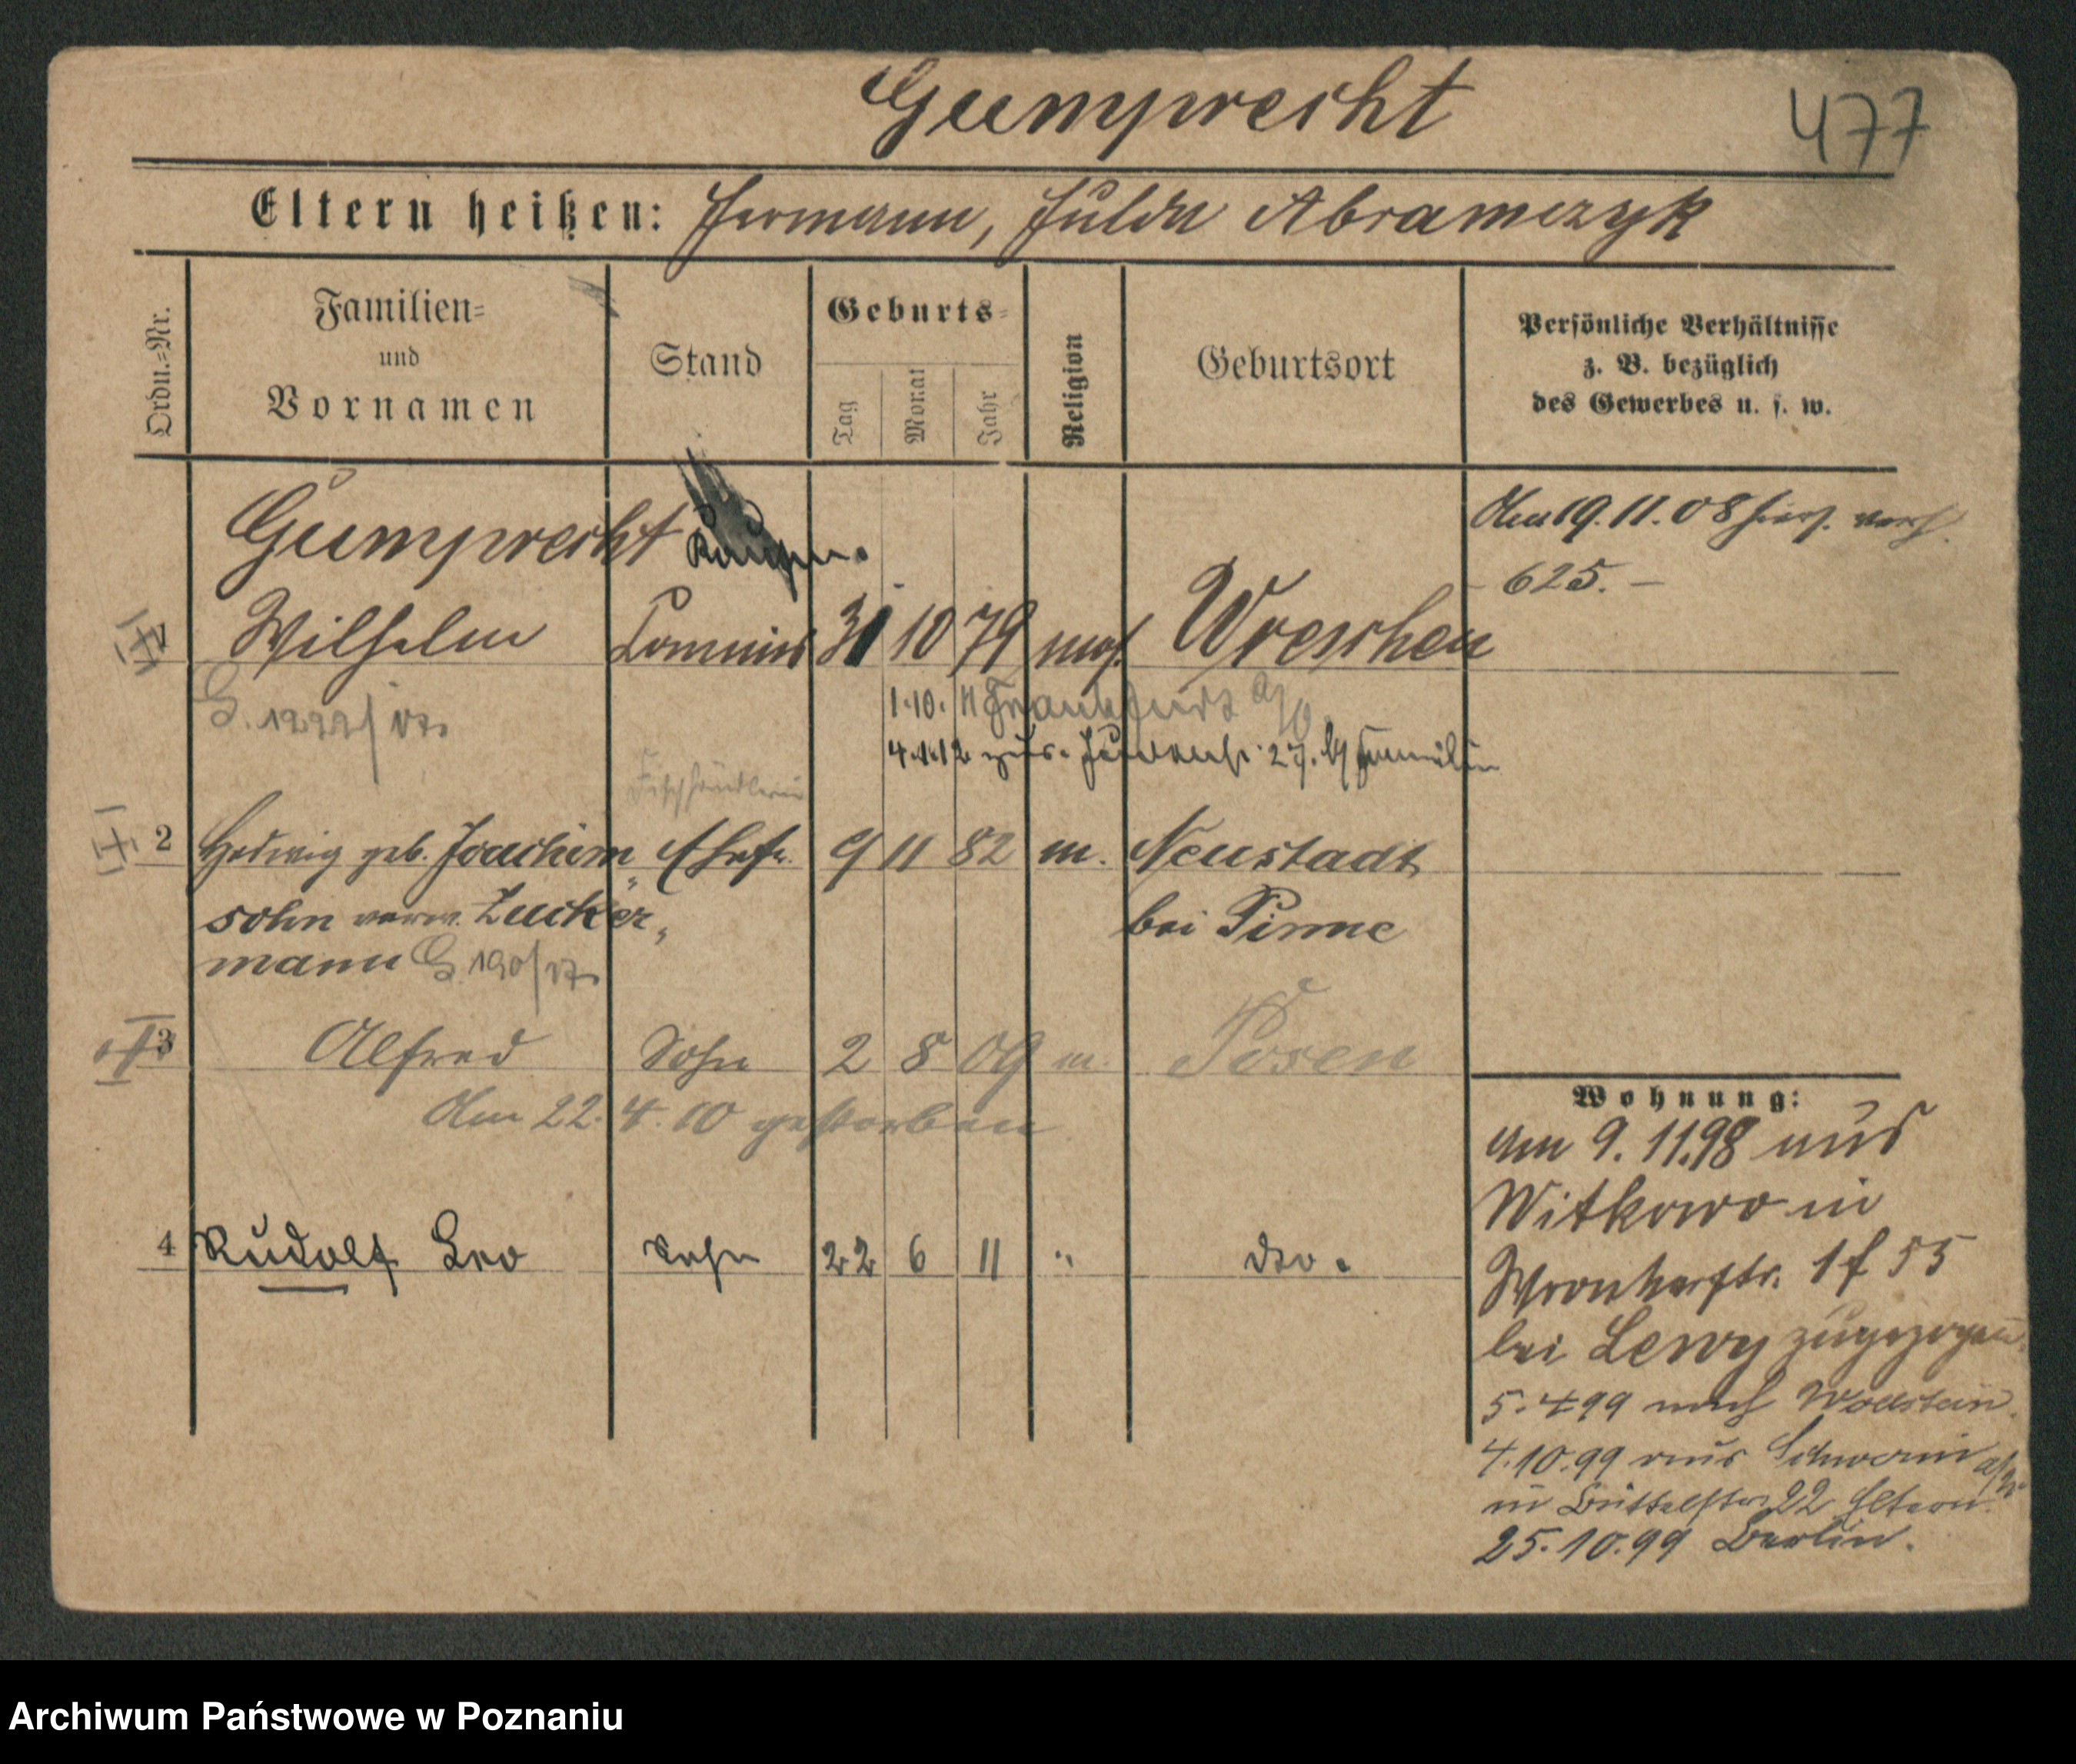 Gumprecht
477
Eltern heißen: Hermann, Hulda Abramczyk
Ordn.=Nr.
Familien=
und
Vornamen
Stand
Geburts=
Tag
Monat
Jahr
Religion
Geburtsort
Persönliche Verhältnisse
z. B. bezüglich
des Gewerbes u. s. w.
Gumprecht Kaufm.
Den 19. 11. 08 hier verh.
625.
1 Wilhelm Commis 31 10 79 mos. Wreschen
1.10. 11 Frankfurt a/O
4.1.12
Fischhändlerin
2 Hedwig geb. Joachim„ Ehefr. 9 11 82 m. Neustadt
sohn verw. Zucker„ bei Pinne
mann G. 190/17
3 Alfred Sohn 2 8 09 m. Posen
Den 22. 4. 10 gestorben
4 Rudolf Leo Sohn 22 6 11 " dto.
Wohnung:
Am 9. 11.98 aus
Witkowo in
Wronkerstr. 1
bei Lewy zugezogen
5. 4 99 nach Wollstein.
4.10.99 aus Schwerin a/W
in Büttelstr. 22 Eltern.
25.10.99 Berlin.
Archiwum Państwowe w Poznaniu